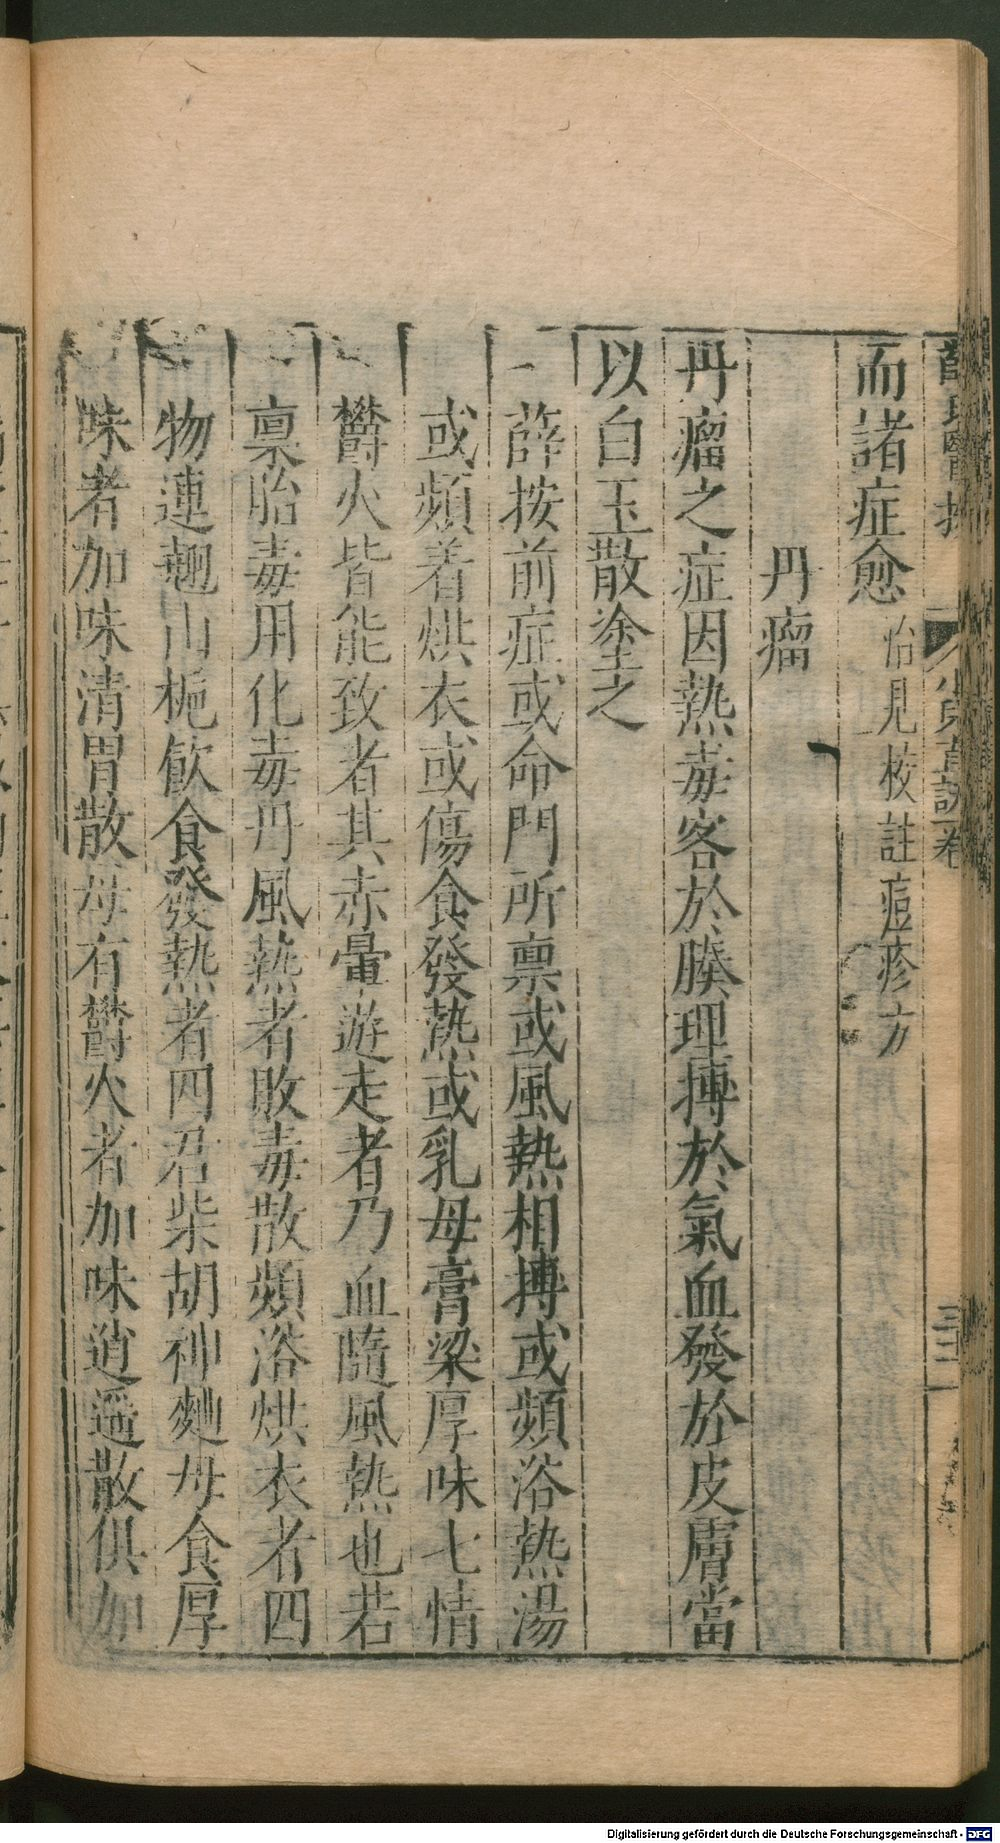 薛氏醫按
小兒直訣一卷
三二
而諸症愈治見校註痘疹方
丹瘤
丹瘤之症因熱毒客於腠理搏於氣血發於皮膚當
以白玉散塗之
薛按前症或命門所禀或風熱相搏或頻浴熱湯
或頻着烘衣或傷食發熱或乳母膏粱厚味七情
欝火皆能致者其赤暈遊走者乃血隨風熱也若
禀胎毒用化毒丹風熱者敗毒散頻浴烘衣者四
物連翹山梔飲食發熱者四君柴胡神麯母食厚
味者加味清胃散母有欝火者加味逍遥散俱加
Digitalisierung gefördert durch die Deutsche Forschungsgemeinschaft - DFG